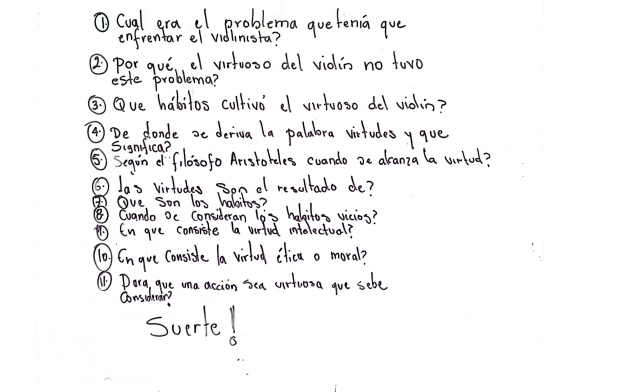 1. Cual era el problema que tenía que
enfrentar el violinista?
2. Por qué, el virtuoso del violín no tuvo
este problema?
3. Que hábitos cultivó el virtuoso del violin?
4. De donde se deriva la palabra virtudes y que
significa?
5. Según el filósofo Aristoteles cuando se alcanza la virtud?
6. Las virtudes son el resultado de?
7. Que son los habitos?
8. Cuando se consideran los habitos vicios?
9. En que consiste la virtud intelectual?
10. En que consiste la virtud ética o moral?
11. Para que una acción sea virtuosa que sebe
considerar?
Suerte!